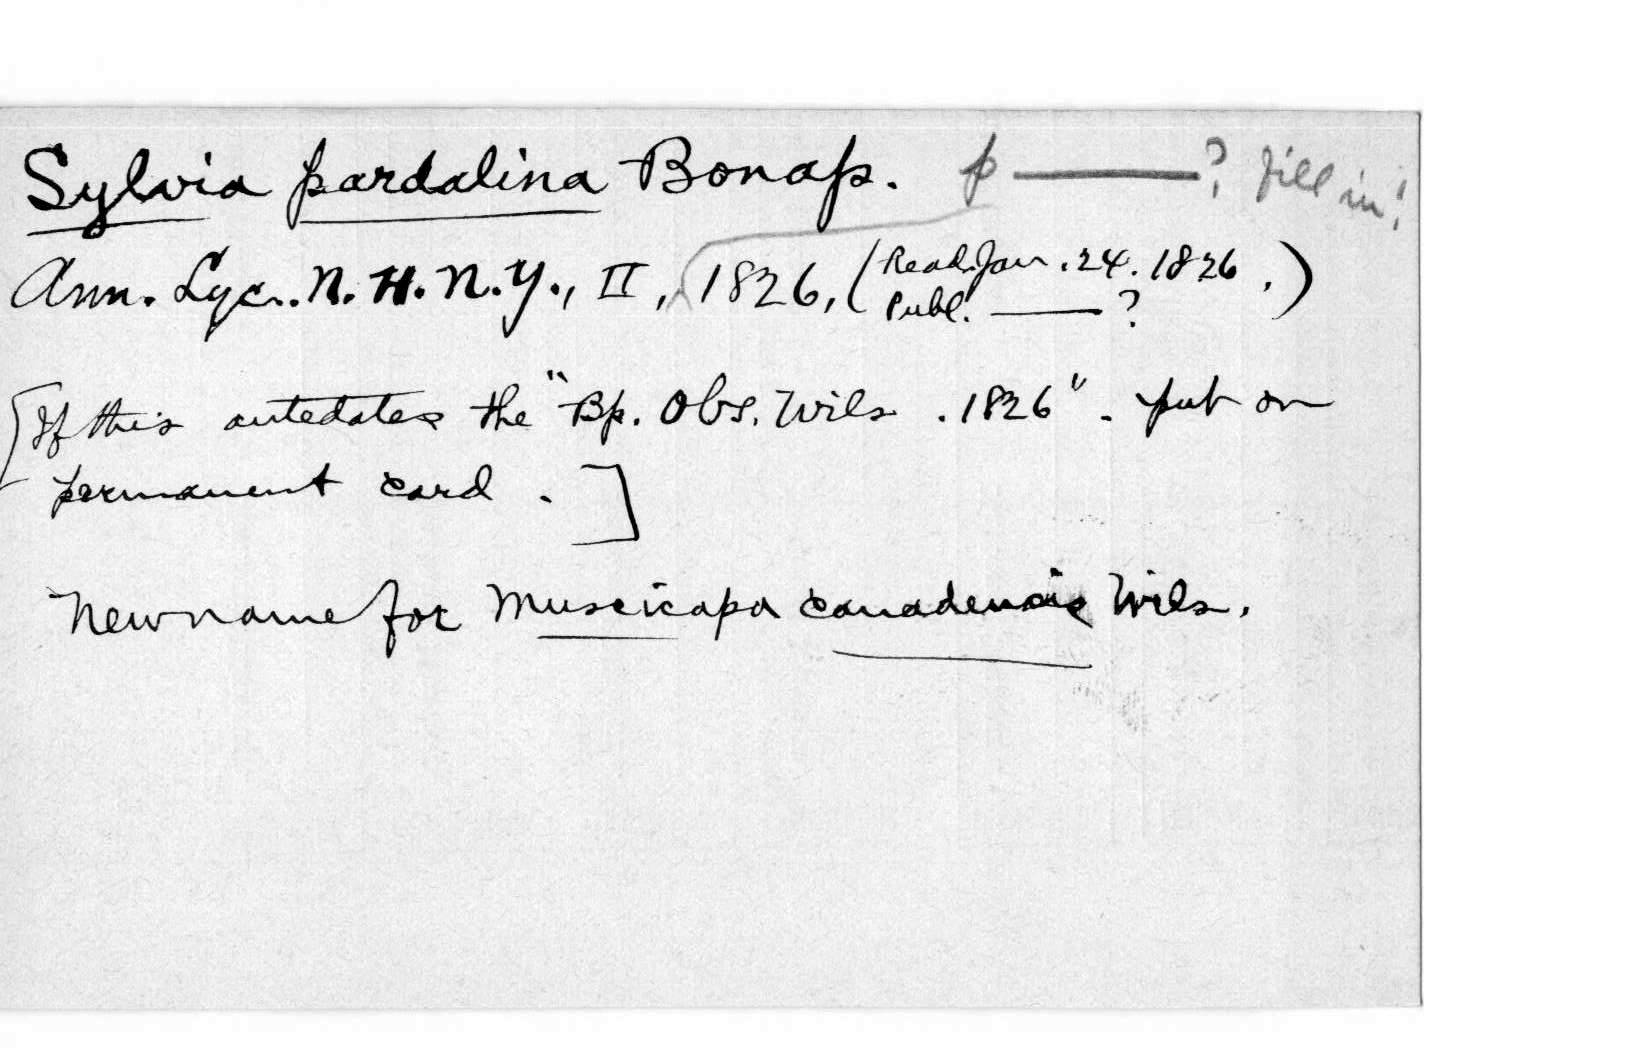 Sylvia pardalina Bonap. p ——? fill in!
Ann. Lyc. N. H. N. Y., II, 1826, (Read Jan. 24. 1826.)
Publ. ——?
[If this antedates the "Bp. Obs. Wils. 1826" - put on
permanent card.]
New name for Muscicapa canadensis Wils.